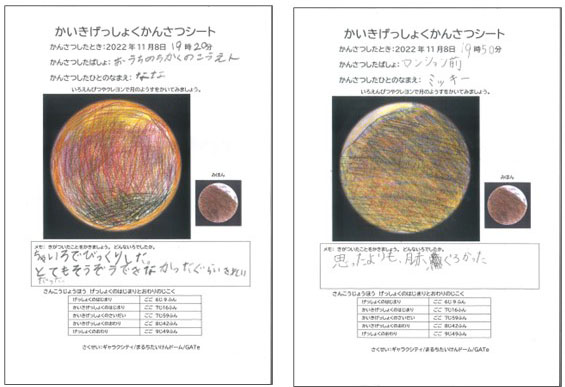 かいきげっしょくかんさつシート
かんさつしたとき:2022年11月8日 19時20分
かんさつしたばしょ:おうちのちかくのこうえん
かんさつしたひとのなまえ:なな
いろえんぴつやクレヨンで月のようすをかいてみましょう。
みほん
メモ: きがついたことをかきましょう。どんないろでしたか。
ちゃいろでびっくりした。
とてもそうぞうできなかったぐらいきれい
だった。
さんこうじょうほう げっしょくのはじまりとおわりのじこく
げっしょくのはじまり ごご 6じ9ふん
かいきげっしょくのはじまり ごご 7じ16ふん
かいきげっしょくのさいだい ごご 7じ59ふん
かいきげっしょくのおわり ごご 8じ42ふん
げっしょくのおわり ごご 9じ49ふん
さくせい:ギャラクシティ/まるちたいけんドーム/GATe
かいきげっしょくかんさつシート
かんさつしたとき:2022年11月8日 19時50分
かんさつしたばしょ:マンション前
かんさつしたひとのなまえ:ミッキー
いろえんぴつやクレヨンで月のようすをかいてみましょう。
みほん
メモ: きがついたことをかきましょう。どんないろでしたか。
思ったよりも、赤ぐろかった
さんこうじょうほう げっしょくのはじまりとおわりのじこく
げっしょくのはじまり ごご 6じ9ふん
かいきげっしょくのはじまり ごご 7じ16ふん
かいきげっしょくのさいだい ごご 7じ59ふん
かいきげっしょくのおわり ごご 8じ42ふん
げっしょくのおわり ごご 9じ49ふん
さくせい:ギャラクシティ/まるちたいけんドーム/GATe